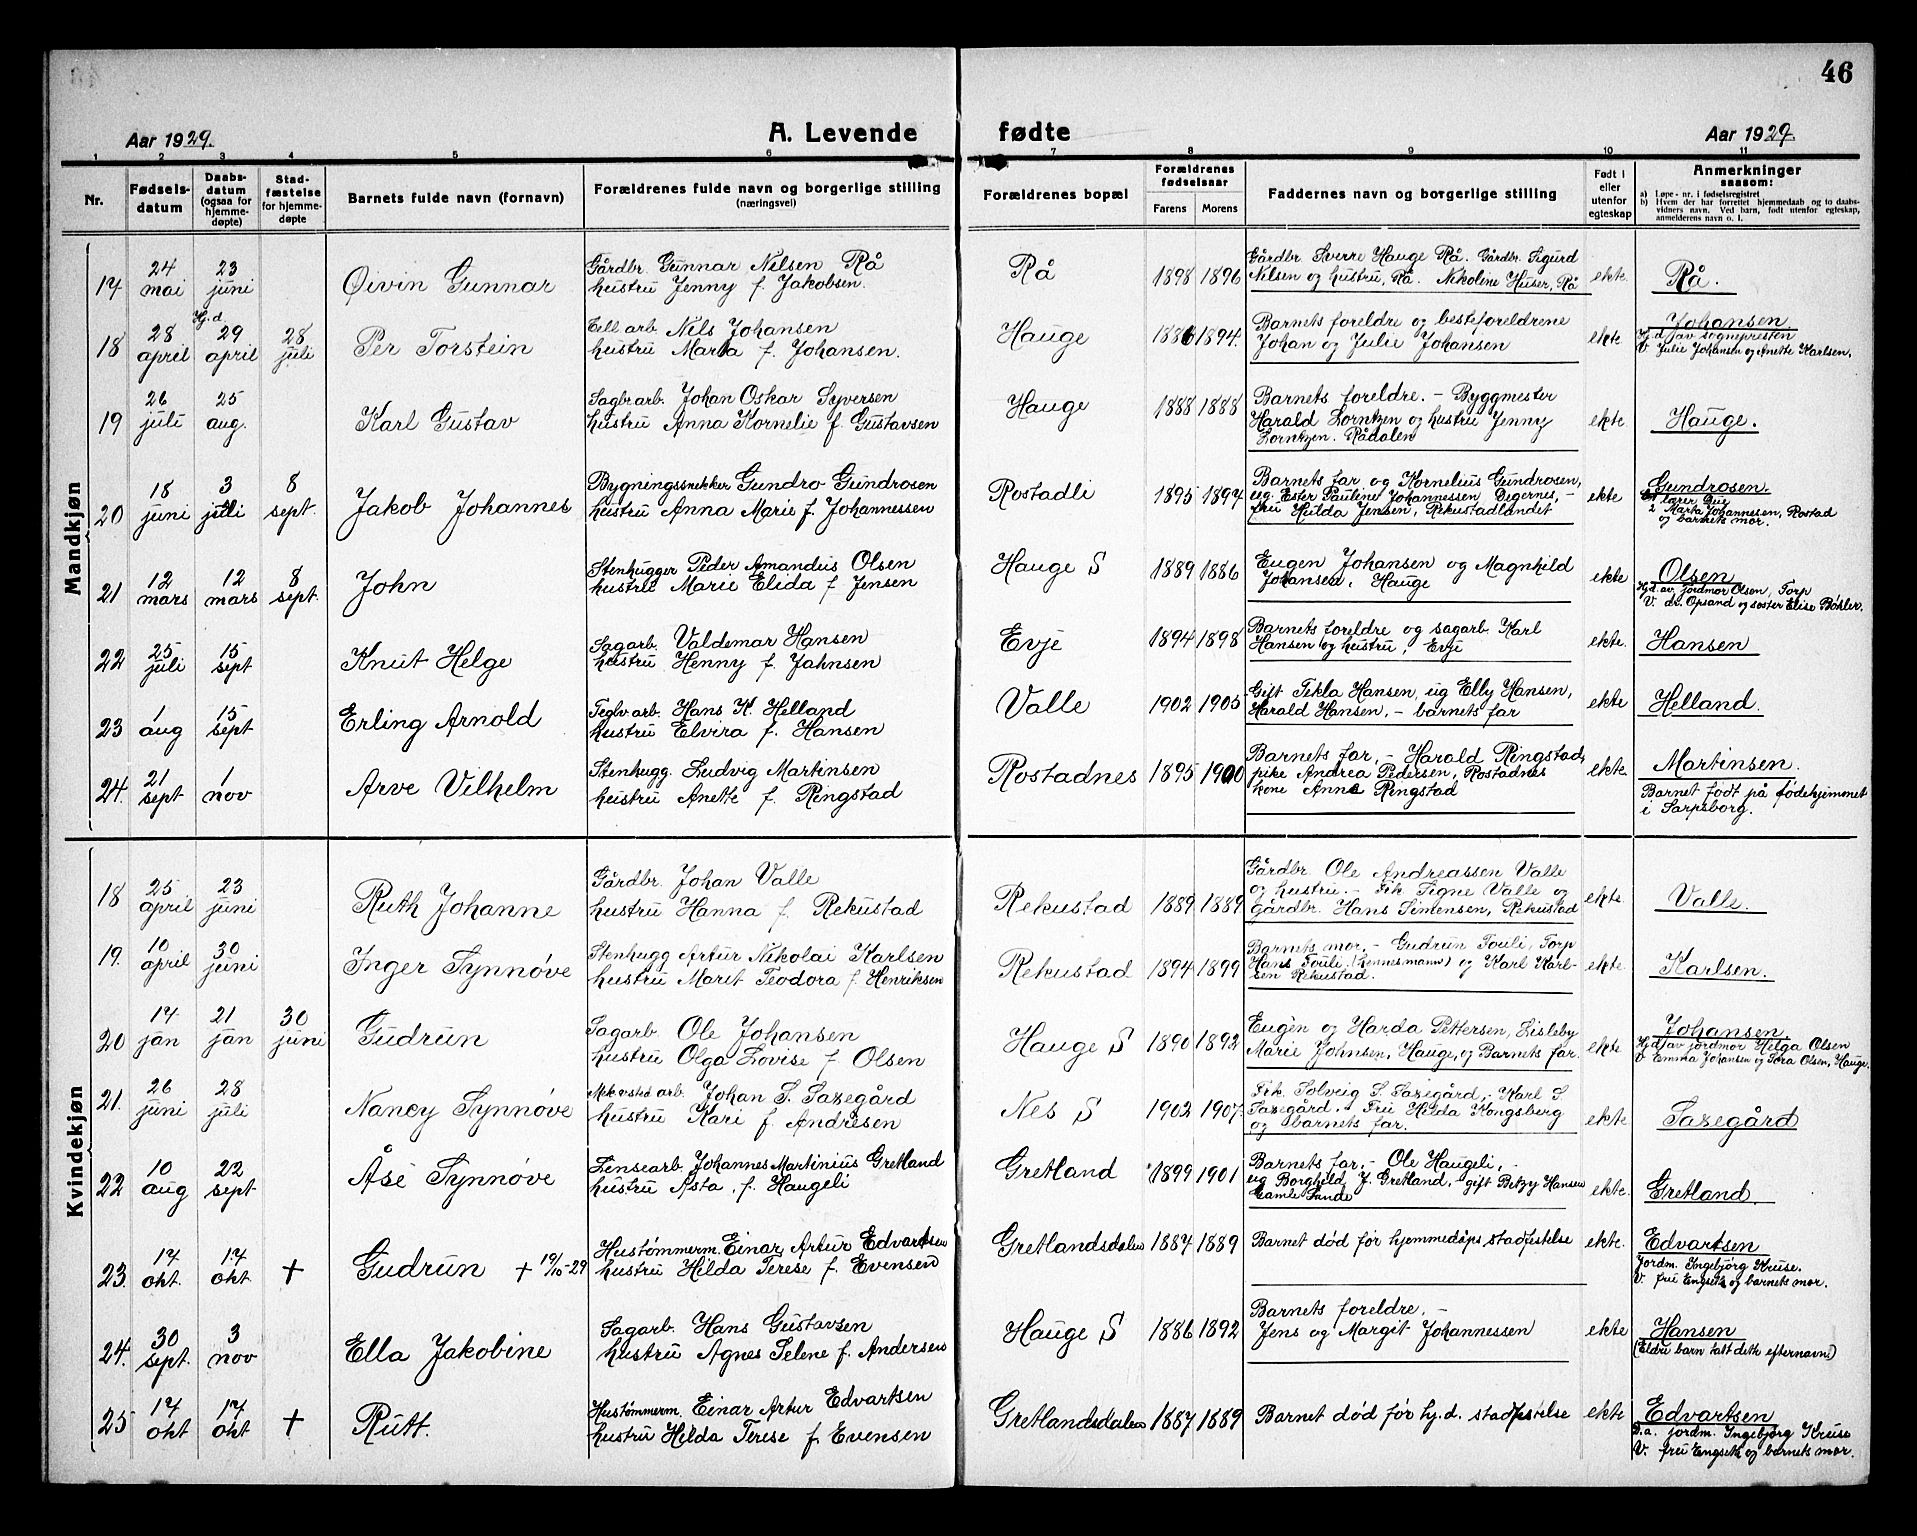 46
Aar 1929. A. Levende fødte Aar 1929.
1 2 3 4 5 6 7 8 9 10 11
Nr. Fødselsdatum Daabsdatum (ogsaa for hjemmedøpte) Stadfæstelse for hjemmedøpte Barnets fulde navn (fornavn) Forældrenes fulde navn og borgerlige stilling (næringsvei) Forældrenes bopæl Forældrenes fødselsaar Farens Morens Faddernes navn og borgerlige stilling Født i eller utenfor egteskap Anmerkninger saasom:
a) Løpe-nr. i fødselsregistret
b) Hvem der har forrettet hjemmedaab og to daabsvidners navn. Ved barn, født utenfor egteskap, anmelderens navn o. l.
Mandkjøn
17 24 mai 23 juni Øivin Gunnar
Gårdbr. Gunnar Nilsen Rå
hustru Jenny f. Jakobsen.
Rå 1898 1896
Gårdbr Sverre Hauge Rå. Gårdbr. Sigurd
Nilsen og hustru, Rå. Nikoline Huser, Rå
ekte Rå.
18 28 april Hj.d. 29 april 28 juli Per Torstein
Cell arb. Nils Johansen
hustru Marta f. Johansen.
Hauge 1886 1894.
Barnets foreldre og besteforeldrene
Johan og Julie Johansen
ekte Johansen
Hj.d. av sognepresten
V. Julie Johansen og Anette Karlsen.
19 26 juli 25 aug. Karl Gustav
Sagbr.arb. Johan Oskar Syversen
hustru Anna Kornelie f. Gustavsen
Hauge 1888 1888
Barnets foreldre. – Byggmester
Harald Lorntzen og hustru Jenny
Lorntzen. Rådalen
ekte Hauge.
20 18 juni 3 juli 8 sept. Jakob Johannes
Bygningssnekker Gundro Gundrosen
hustru Anna Marie f. Johannessen
Rostadli 1895 1897
Barnets far og Kornelius Gundrosen,
ug. Ester Pauline Johannessen Degernes, –
fru Hilda Jensen, Rekustadlandet
ekte Gundrosen.
lærer Bue
2 Marta Johannesen, Rostad
og barnets mor.
21 12 mars 12 mars 8 sept. John
Stenhugger Peder Amandus Olsen
hustru Marie Elida f Jensen
Hauge S 1889 1886
Eugen Johansen og Magnhild
Johansen, Hauge
ekte Olsen
Hjd. av jordmor Olsen, Torp
V. dr. Opsand og søster Elise Bøhler.
22 25 juli 15 sept Knut Helge
Sagarb. Valdemar Hansen
hustru Henny f. Jahnsen
Evje 1894 1898
Barnets foreldre og sagarb. Karl
Hansen og hustru, Evje
ekte. Hansen
23 1 aug 15 sept Erling Arnold
Teglv.arb. Hans K. Helland
hustru Elvira f. Hansen
Valle 1902 1905
Gift Tekla Hansen, ug Elly Hansen,
Harald Hansen, – barnets far
ekte Helland.
24. 21 sept 1 nov Arve Vilhelm
Stenhugg. Ludvig Martinsen
hustru Anette f. Ringstad
Rostadnes 1895 1900
Barnets far, – Harald Ringstad,
pike Andrea Pedersen, Rostadnes
kone Anna Ringstad
ekte. Martinsen.
Barnet født på fødehjemmet
i Sarpsborg.
Kvindekjøn
18 25 april 23 juni Ruth Johanne
Gårdbr. Johan Valle
hustru Hanna f. Rekustad
Rekustad 1889 1889
Gårdbr Ole Andreassen Valle
og hustru. – Frk Signe Valle og
gårdbr. Hans Simensen, Rekustad
ekte. Valle.
19. 10 april 30 juni Inger Synnøve
Stenhugg Artur Nikolai Karlsen
hustru Marit Teodora f Henriksen
Rekustad 1894 1899
Barnets mor. – Gudrun Fouli, Torp
Hans Fouli. (hennes mann) og Karl Karl-
sen Rekustad.
ekte. Karlsen.
20 17 jan 21 jan 30 juni Gudrun
Sagarb. Ole Johansen
hustru Olga Lovise f Olsen
Hauge S 1890 1892
Eugén og Harda Pettersen, Lisleby
Marie Johnsen, Hauge, og Barnets far.
ekte Johansen
Hjd/av jordmor Helga Olsen
V. Emma Johansen og Tora Olsen, Hauge.
21. 26 juni 28 juli Nancy Synnøve
Mek.v.sted arb. Johan S. Sazegård
hustru Kari f. Andresen
Nes S 1902 1907
Frk. Solveig S. Sazegård, – Karl S.
Sazegård, – Fru Hilda Kongsberg
og barnets far.
ekte Sazegård
22 10 aug 22 sept Åse Synnøve
Lensearb. Johannes Martinius Gretland
hustru Asta f. Haugeli
Gretland 1899 1901
Barnets far, – Ole Haugeli, –
ug Borghild J. Gretland, – gift Betzy Hansen
Gamle Sande
ekte. Gretland.
23 17 okt. 17 okt. + Gudrun + 19/10-29
Hustømmerm. Einar Artur Edvartsen
hustru Hilda Terese f. Evensen
Gretlandsdalen 1887 1889
Barnet død før hjemmedåps stadfestelse
ekte. Edvartsen
Jordm. Ingebjørg Kruse.
V. fru Engseth og barnets mor.
24. 30 sept. 3 nov Ella Jakobine
Sagarb. Hans Gustavsen
hustru Agnes Selene f. Andersen
Hauge S 1886 1892
Barnets foreldre, –
Jens og Margit Johannessen
ekte Hansen
(Eldre barn tatt dette efternavn)
25 17 okt 17 okt + Rutt.
Hustømmerm. Einar Artur Edvartsen
hustru Hilda Terese f. Evensen
Gretlandsdalen 1887 1889
Barnet død før hj.d. stadfestelse
ekte Edvartsen
D.a. jordm. Ingebjørg Kruse
V. fru Engseth og barnets mor.